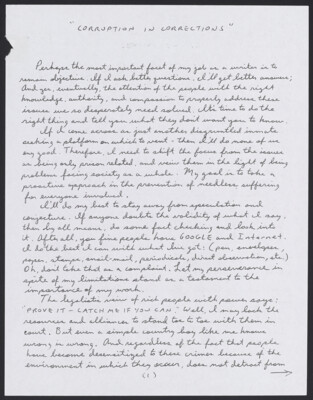 "CORRUPTION IN CORRECTIONS"
Perhaps the most important facet of my job as a writer is to
remain objective. If I ask better questions, I'll get better answers;
And yes, eventually, the attention of the people with the right
knowledge, authority, and compassion to properly address these
issues we so desperately need solved. It's time to do the
right thing and tell you what they don't want you to know.
If I come across as just another disgruntled inmate
seeking a platform on which to vent - then I'll do none of us
any good. Therefore, I need to shift the focus from the issues
as being only prison related, and view them in the light of being
problems facing society as a whole. My goal is to take a
proactive approach in the prevention of needless suffering
for everyone involved.
I'll do my best to stay away from speculation and
conjecture. If anyone doubts the validity of what I say,
then by all means, do some fact checking and look into
it. After all, you fine people have GOOGLE and Internet.
I do the best I can with what I've got: (pen, envelopes,
paper, stamps, snail-mail, periodicals, direct observation, etc.)
Oh, don't take that as a complaint. Let my perseverance in
spite of my limitations stand as a testament to the
importance of my work.
The legalistic view of rich people with power says:
"PROVE IT - CATCH ME IF YOU CAN." Well, I may lack the
resources and alliances to stand toe to toe with them in
court. But even a simple country boy like me knows
wrong is wrong. And regardless of the fact that people
have become desensitized to these crimes because of the
environment in which they occur, does not detract from
(1)